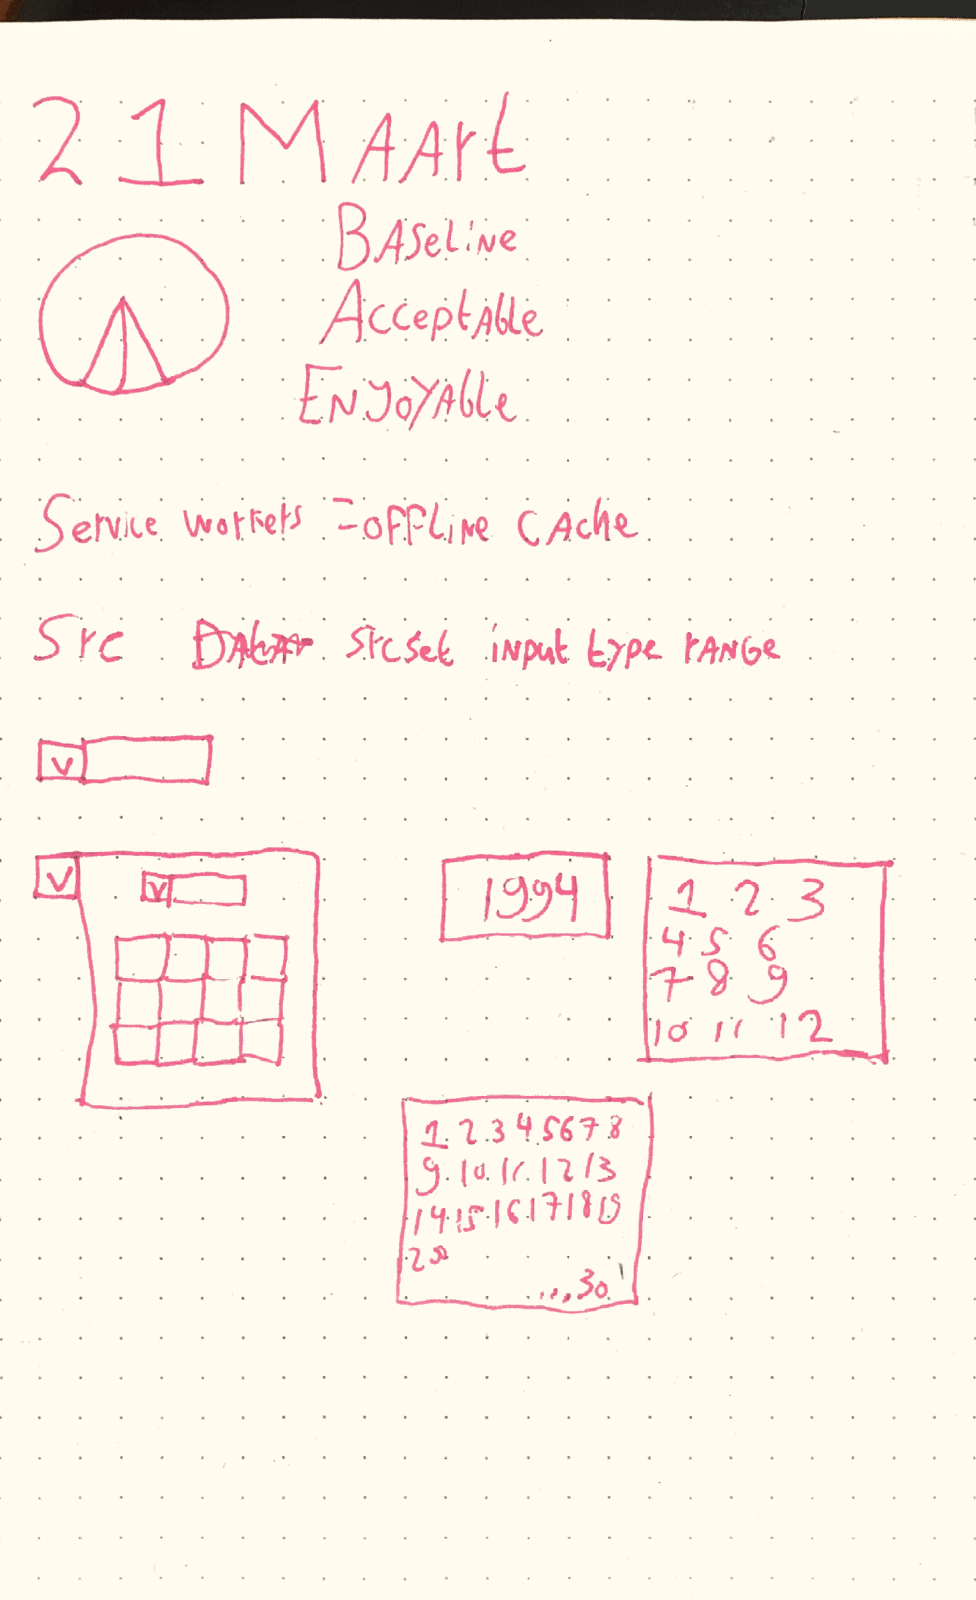 21 MAArt
BAseline
Acceptable
ENJOYAble
Service workers = OFFLine CAche
Src srcset input type rANGe
V
V
V
1994
1 2 3
4 5 6
7 8 9
10 11 12
1 2 3 4 5 6 7 8
9 10 11 12 13
14 15 16 17 18 19
20
...,30